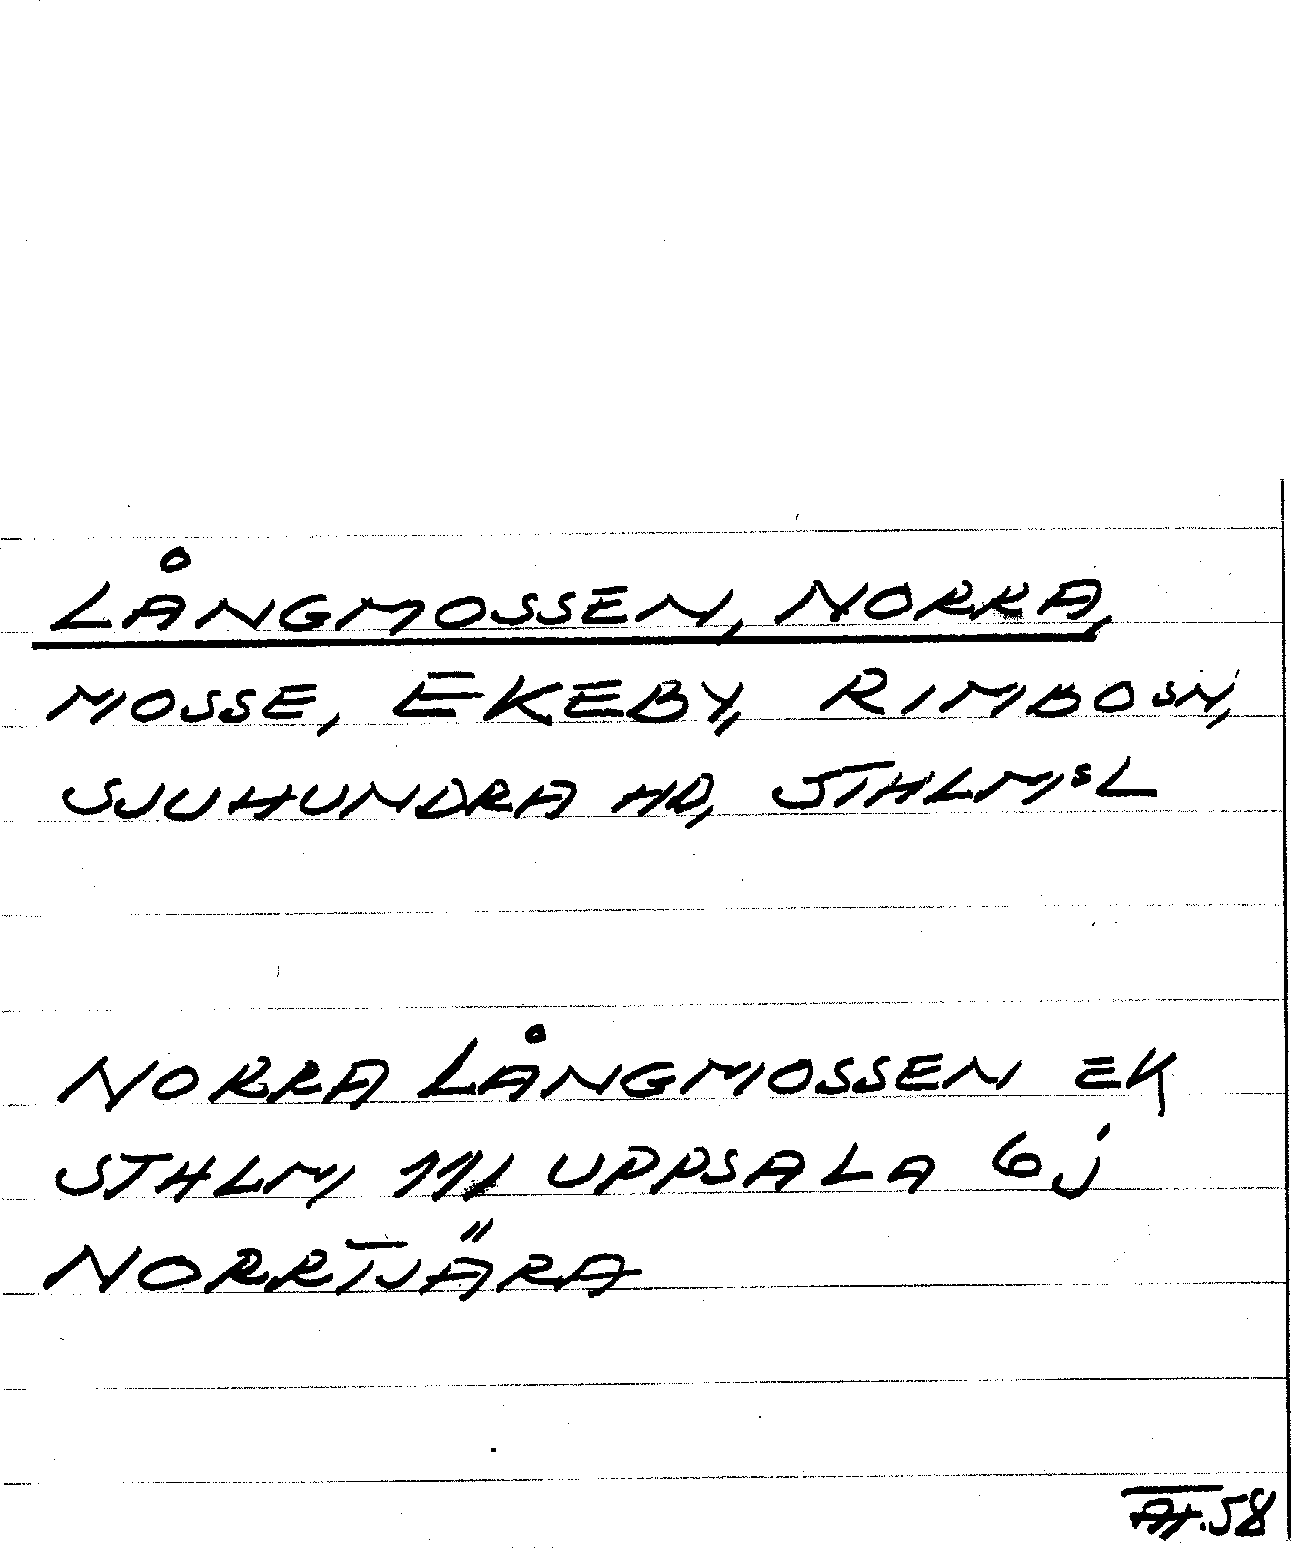 LÅNGMOSSEN, NORRA,
MOSSE, EKEBY, RIMBO SN,
SJUHUNDRA HD, STHLMSL
NORRA LÅNGMOSSEN EK
STHLM 111 UPPSALA 6j
NORRTJÄRA
58